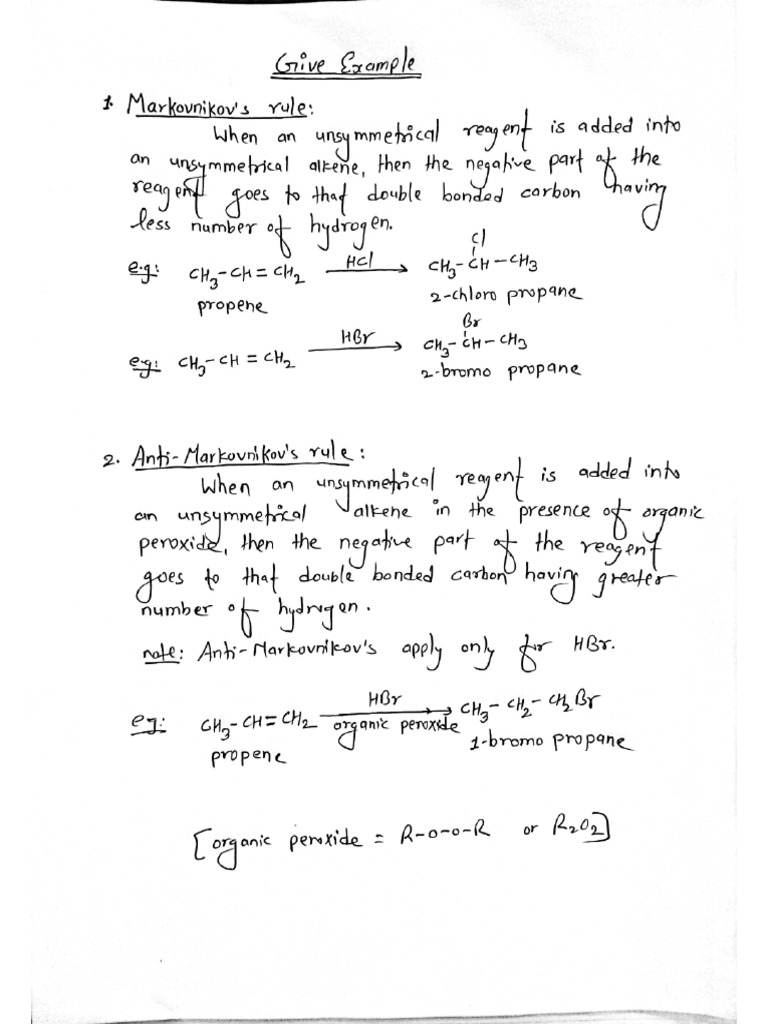 Give Example
1. Markovnikov's rule:
When an unsymmetrical reagent is added into
an unsymmetrical alkene, then the negative part of the
reagent goes to that double bonded carbon having
less number of hydrogen.
Cl
e.g: CH₃-CH=CH₂ HCl → CH₃-CH-CH₃
propene 2-chloro propane
Br
e.g: CH₃-CH=CH₂ HBr → CH₃-CH-CH₃
2-bromo propane
2. Anti-Markovnikov's rule:
When an unsymmetrical reagent is added into
an unsymmetrical alkene in the presence of organic
peroxide, then the negative part of the reagent
goes to that double bonded carbon having greater
number of hydrogen.
note: Anti-Markovnikov's apply only for HBr.
eg: CH₃-CH=CH₂ HBr → CH₃-CH₂-CH₂Br
organic peroxide
propene 1-bromo propane
[organic peroxide = R-O-O-R or R₂O₂]